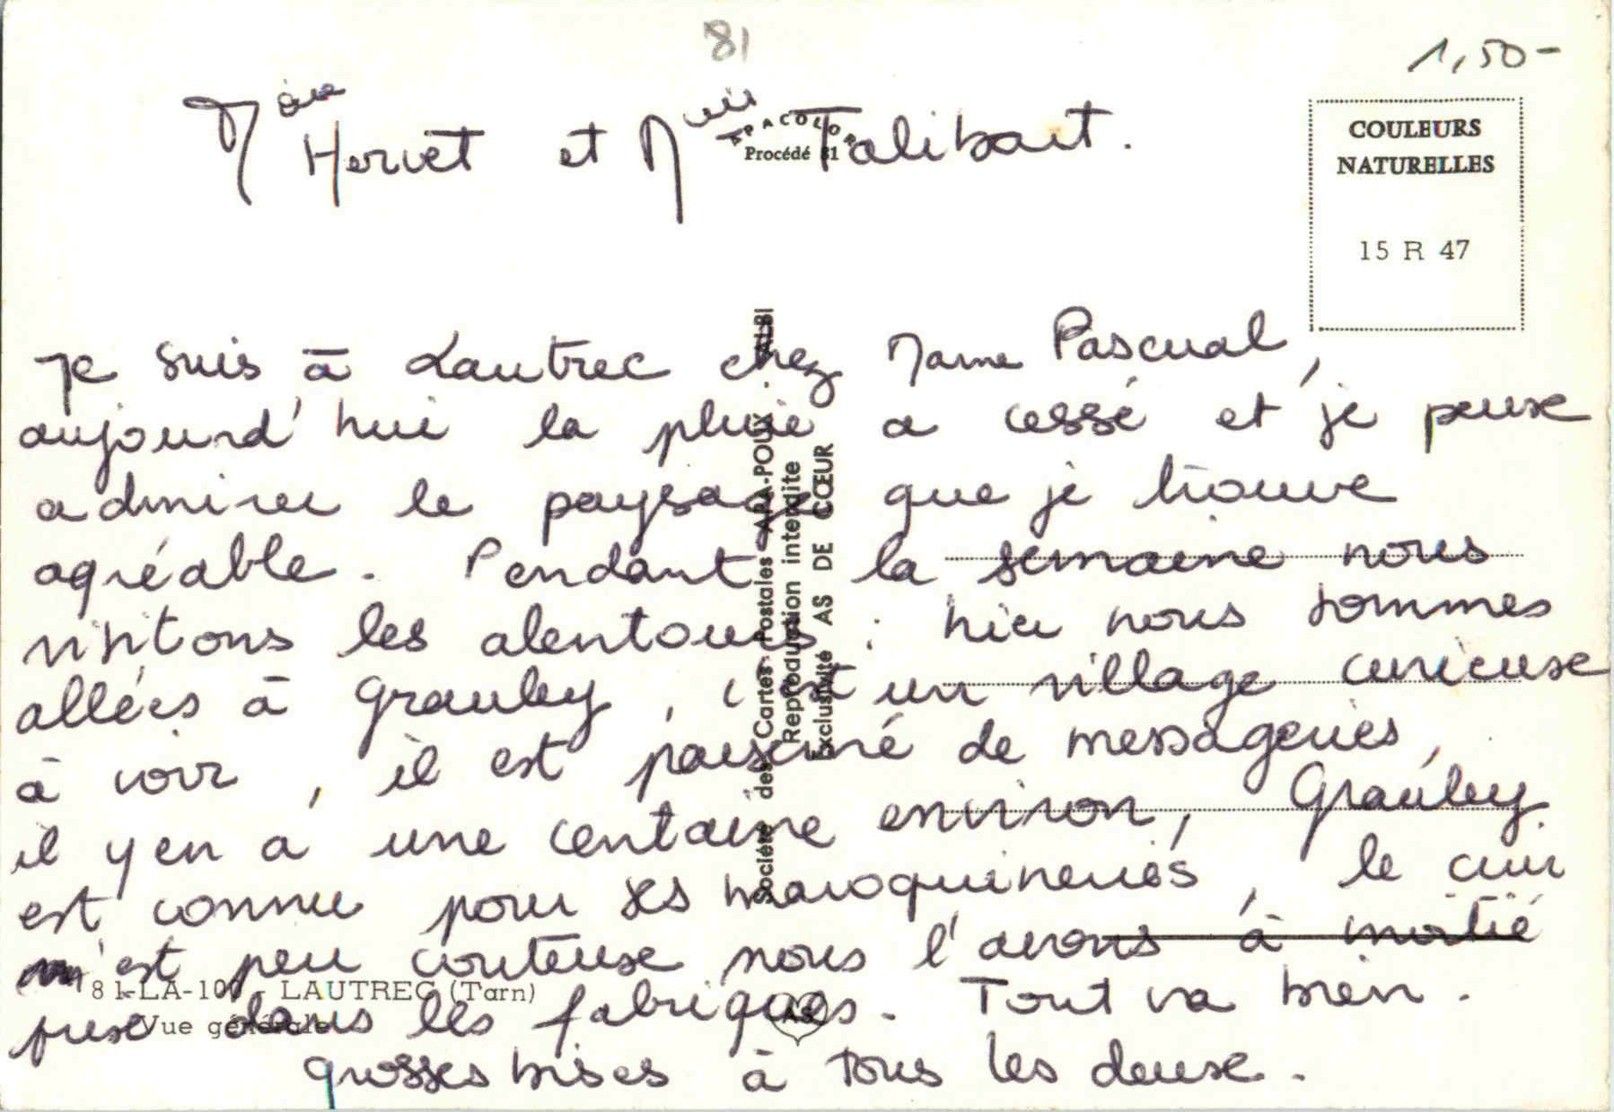 81
1,50-
Hervet et Talibart.
APACOLOR
Procédé 81
COULEURS
NATURELLES
15 R 47
Je suis à Lautrec chez Mame Pascual,
aujourd'hui la pluie a cessé et je peux
admirer le paysage que je trouve
agréable. Pendant la semaine nous
visitons les alentours : hier nous sommes
allées à Graulhey, c'est un village curieux
à voir, il est parsemé de messageries,
il y en a une centaine environ, Graulhey
est connu pour ses maroquineries, le cuir
n'est peu couteuse nous l'avons à moitié
prix dans les fabriques. Tout va bien.
grosses bises à tous les deux.
Société des Cartes Postales APA-POUX - ALBI
Reproduction interdite
Exclusivité AS DE CŒUR
81-LA-100 - LAUTREC (Tarn)
Vue générale
AS